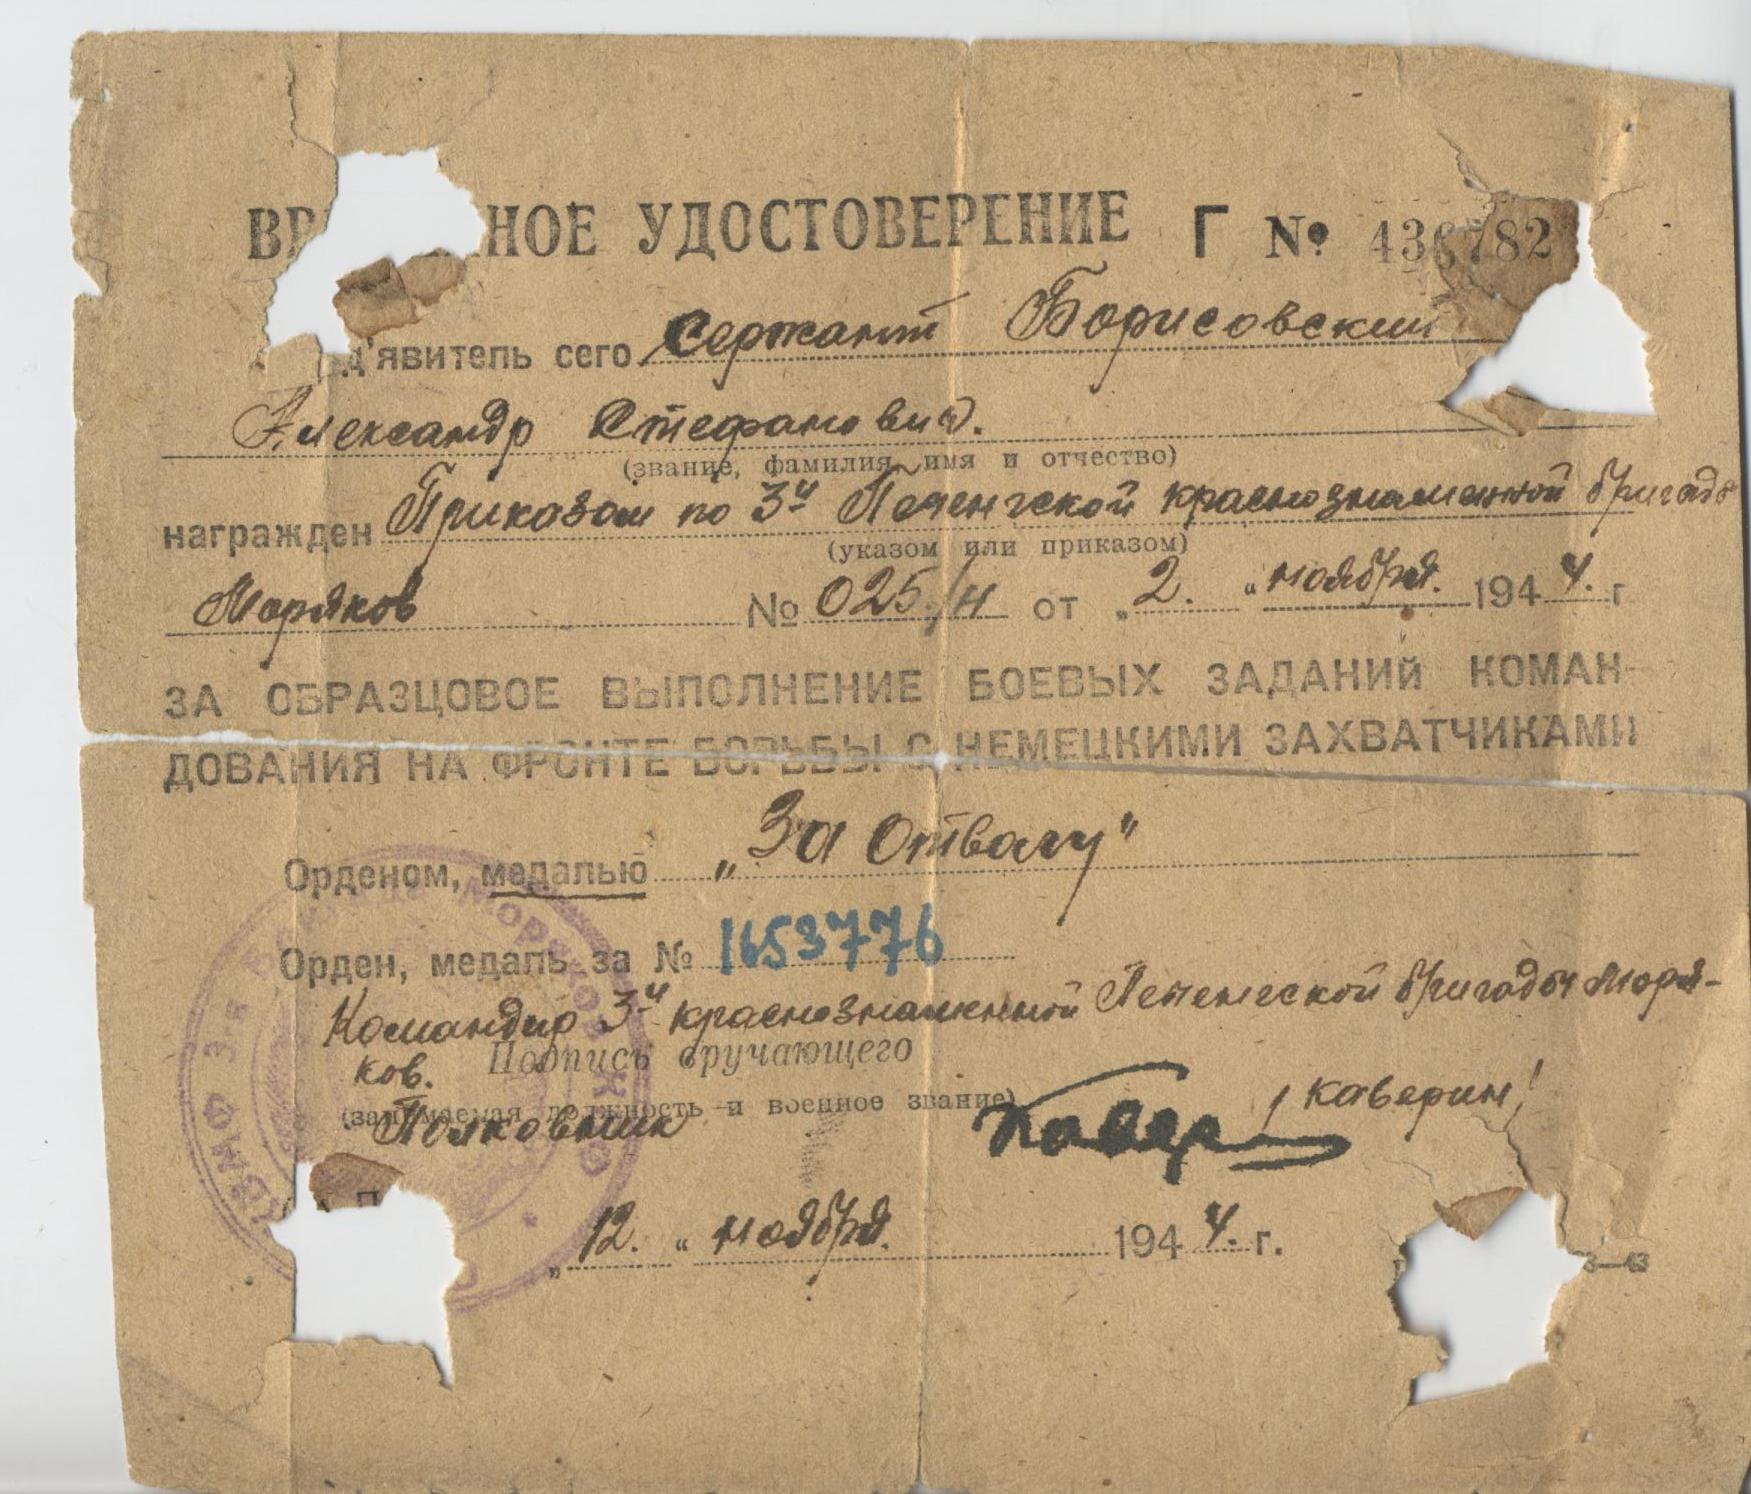 НОЕ УДОСТОВЕРЕНИЕ Г № 436782
д'явитель сего Сержант Борисовский
Александр Стефанович.
(звание, фамилия, имя и отчество)
награжден Приказом по 3й Печенгской краснознаменной бригаде
(указом или приказом)
Моряков № 025/н от „2." ноября. 1944. г
ЗА ОБРАЗЦОВОЕ ВЫПОЛНЕНИЕ БОЕВЫХ ЗАДАНИЙ КОМАН-
ДОВАНИЯ НА ФРОНТЕ БОРЬБЫ С НЕМЕЦКИМИ ЗАХВАТЧИКАМИ
Орденом, медалью „За Отвагу"
Орден, медаль за № 1653776
Командир 3й краснознаменной Печенгской бригады моря-
ков. Подпись вручающего
(занимаемая должность и военное звание)
Полковник Кавер /Каверин/
„12." ноября. 1944. г.